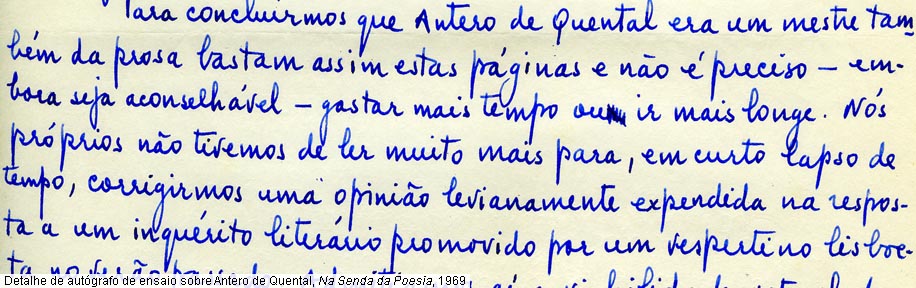 Para concluirmos que Antero de Quental era um mestre tam-
bém da prosa bastam assim estas páginas e não é preciso – em-
bora seja aconselhável – gastar mais tempo ou ir mais longe. Nós
próprios não tivemos de ler muito mais para, em curto lapso de
tempo, corrigirmos uma opinião levianamente expendida na respos-
ta a um inquérito literário promovido por um vespertino lisboe-
ta no verão
Detalhe de autógrafo de ensaio sobre Antero de Quental, Na Senda da Poesia, 1969